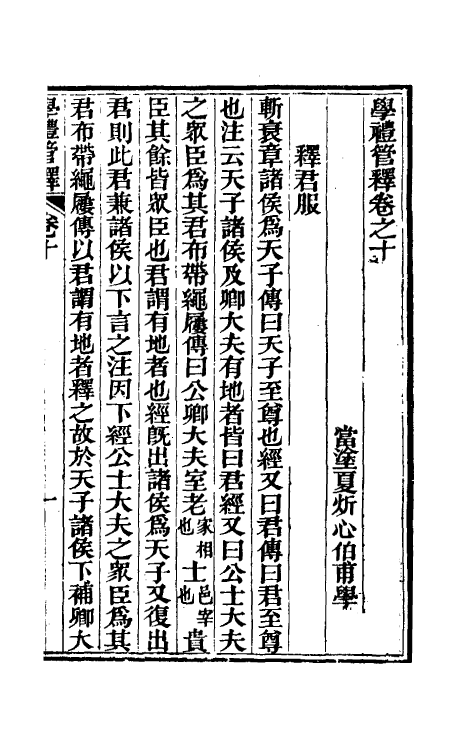 學禮管釋卷之十
當塗夏炘心伯甫學
釋君服
斬衰章諸侯爲天子傳曰天子至尊也經又曰君傳曰君至尊
也注云天子諸侯及卿大夫有地者皆曰君經又曰公士大夫
之眾臣爲其君布帶繩屨傳曰公卿大夫室老家相也士邑宰也貴
臣其餘皆眾臣也君謂有地者也經旣出諸侯爲天子又復出
君則此君兼諸侯以下言之注因下經公士大夫之眾臣爲其
君布帶繩屨傳以君謂有地者釋之故於天子諸侯下補卿大
學禮管釋 卷十 一